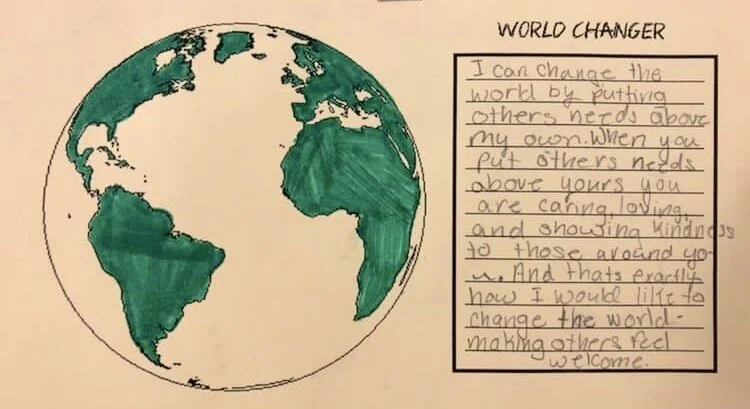 WORLD CHANGER
I can change the
world by putting
others needs above
my own. When you
put others needs
above yours you
are caring, loving,
and showing kindness
to those around yo-
u. And thats exactly
how I would like to
change the world-
making others feel
welcome.